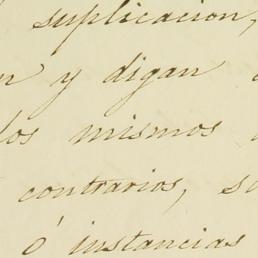 suplicacion,
y digan
los mismos
contrarios,
ó instancias